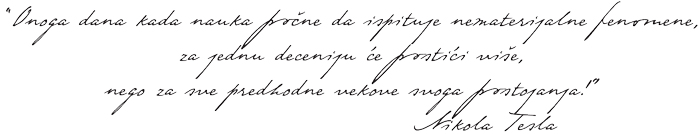 "Onoga dana kada nauka počne da ispituje nematerijalne fenomene,
za jednu deceniju će postići više,
nego za sve predhodne vekove svoga postojanja!"
Nikola Tesla